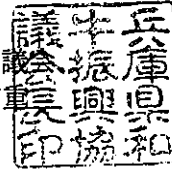 兵庫県和
牛振興協
議会長印
議
重